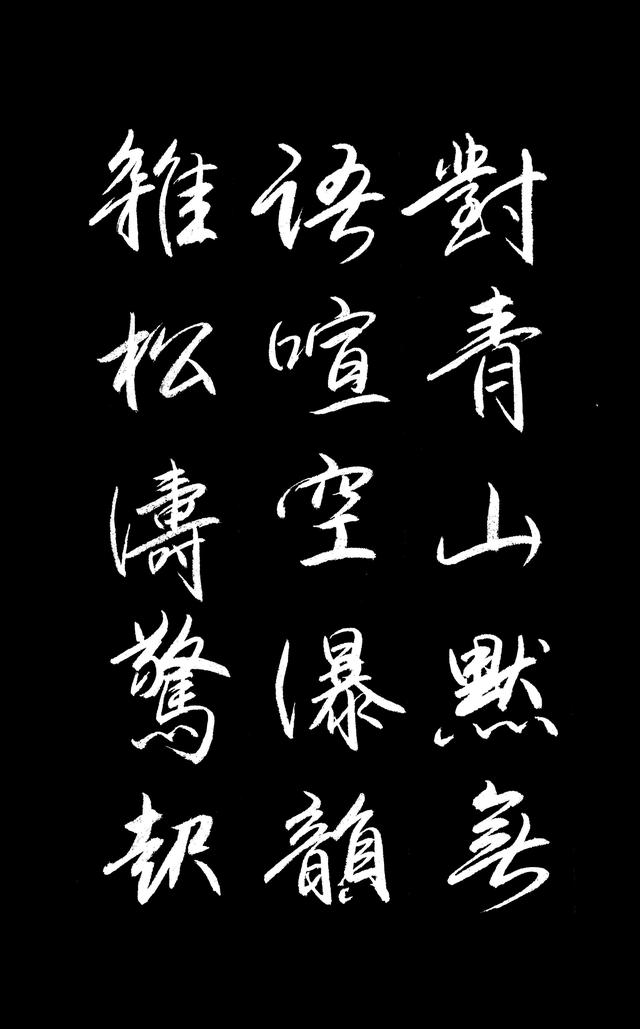 對青山默無
語喧空瀑韻
雜松濤驚